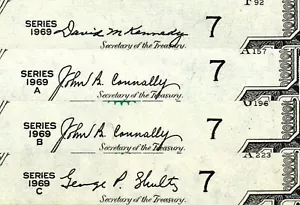 F92
SERIES
1969
David M Kennedy
7
Secretary of the Treasury.
A157
SERIES
1969
A
John B. Connally
7
Secretary of the Treasury.
G196
SERIES
1969
B
John B. Connally
7
Secretary of the Treasury.
A223
SERIES
1969
C
George P. Shultz
7